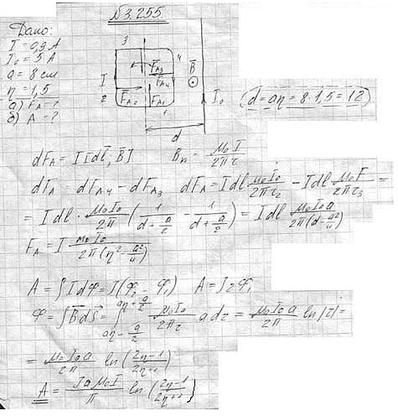 №3.255.
Дано:
I = 0,9 А
I₀ = 5 А
a = 8 см
η = 1,5
а) F_A = ?
б) A = ?
3 4
I B⃗ I₀
2 F_A₂ F_A₁
d
(d = aη = 8·1,5 = 12)
dF_A = I[dl⃗, B⃗] B_n = μ₀I/2πr
dF_A = dF_A₄ − dF_A₃ dF_A = Idl μ₀I₀/2πr₂ − Idl μ₀I/2πr₃ =
= Idl · μ₀I₀/2π (1/(d − a/2) − 1/(d + a/2)) = Idl μ₀I₀a/2π(d − a²/4)
F_A = I μ₀I₀/2π(η² − a²/4)
A = ∫IdФ = I(Ф₂ − Ф₁) A = I2Ф₁
Ф = ∫B⃗dS⃗ = ∫ aη + a/2 aη − a/2 μ₀I₀/2πr adr = μ₀I₀a/2π ln|r| =
= μ₀I₀a/2π ln(2η−1/2η+1)
A = Iaμ₀I/π ln(2η−1/2η+1)